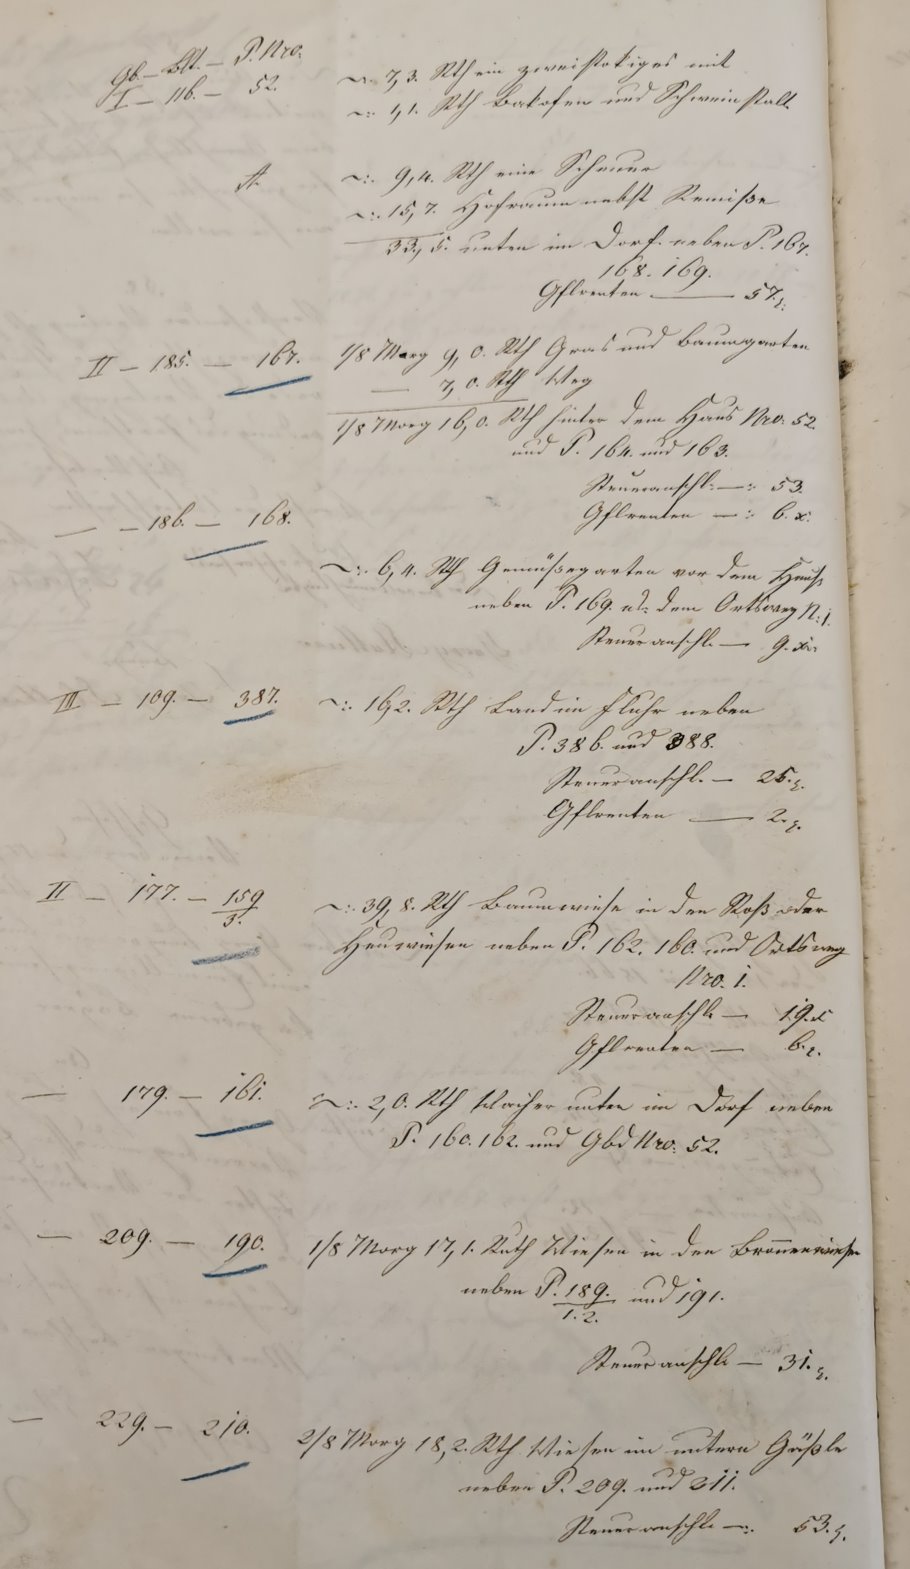 Gb. – Blt. – P. Nro.
I – 116. – 52. –: 7,3. Rth ein zweistokiges mit
–: 1,1. Rth Bakofen und Schweinstall
A. –: 9,4. Rth eine Scheuer
–: 15,7. Hofraum nebst Remiße
33,5. unten im Dorf neben P. 167.
168. 169.
Gflrenten — 57.
II – 185. – 167. 1/8 Morg 9,0. Rth Gras und Baumgarten
— 7,0. Rth Weg
1/8 Morg 16,0. Rth hinter dem Haus Nro. 52.
und P. 164. und 163.
Steueranschl. —: 53.
Gflrenten —: 6. x.
— – 186. – 168.
–: 6,4. Rth Gemüßegarten vor dem Hauß
neben P. 169. u. dem Ortsweg N. 1.
Steueranschl. — 9. x.
III – 109. – 387. –: 16,2. Rth Land im Fluhr neben
P. 386. und 388.
Steueranschl. — 25.
Gflrenten — 2.
II – 177. – 159/3. –: 39,8. Rth Baumwiese in den Roß oder
Heuwiesen neben P. 162. 160. und Ortsweg
Nro. 1.
Steueranschl. — 19. x
Gflrenten — 6.
— 179. – 161. –: 2,0. Rth Waiher unten im Dorf neben
P. 160. 162. und Gbd Nro. 52.
— 209. – 190. 1/8 Morg 17,1. Ruth Wiesen in den Bronnenwiesen
neben P. 189./1.2. und 191.
Steueranschl. — 31.
— 229. – 210. 2/8 Morg 18,2. Rth Wiesen im untern Gäßle
neben P. 209. und 211.
Steueranschl. —: 53.